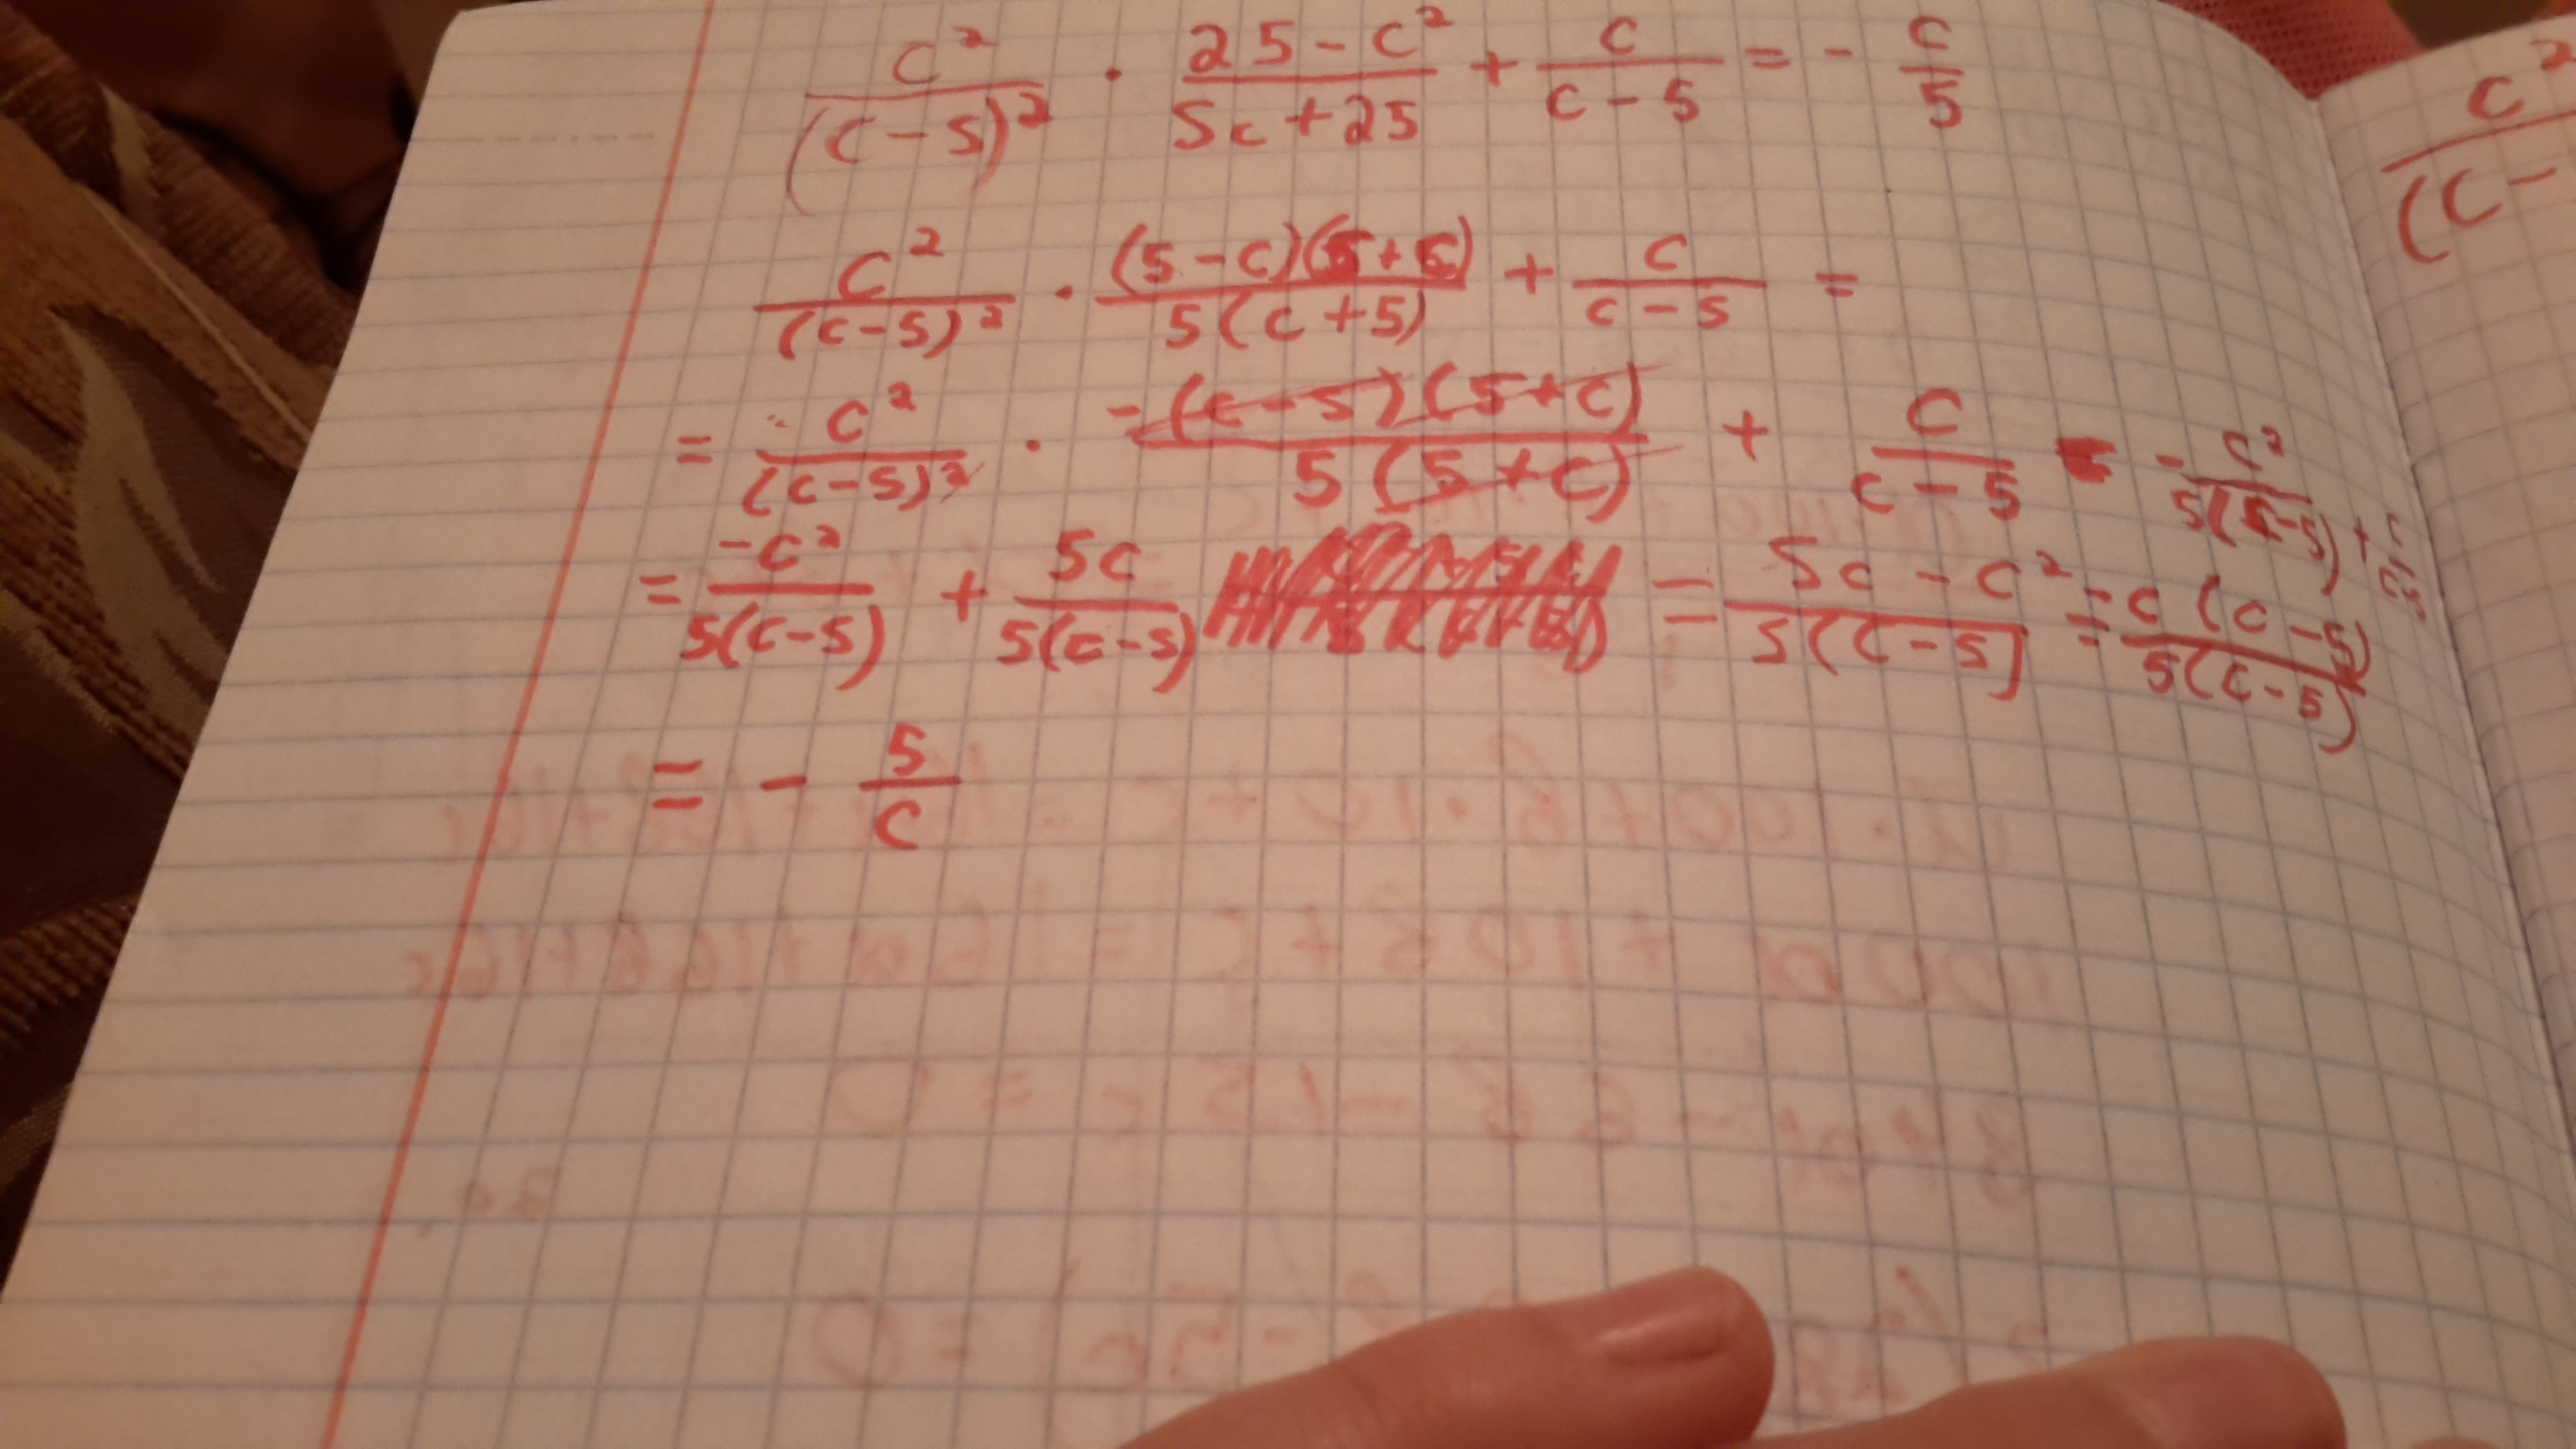 c²/(c-5)² · (25-c²)/(5c+25) + c/(c-5) = - c/5
c²/(c-5)² · (5-c)(5+5)/5(c+5) + c/(c-5) =
= c²/(c-5)² · -(c-5)(5+c)/5(5+c) + c/(c-5) - c²/5(c-5) + c/(c-5)
= -c²/5(c-5) + 5c/5(c-5) = (5c-c²)/5(c-5) = -c(c-5)/5(c-5)
= - 5/c
c²
(c-